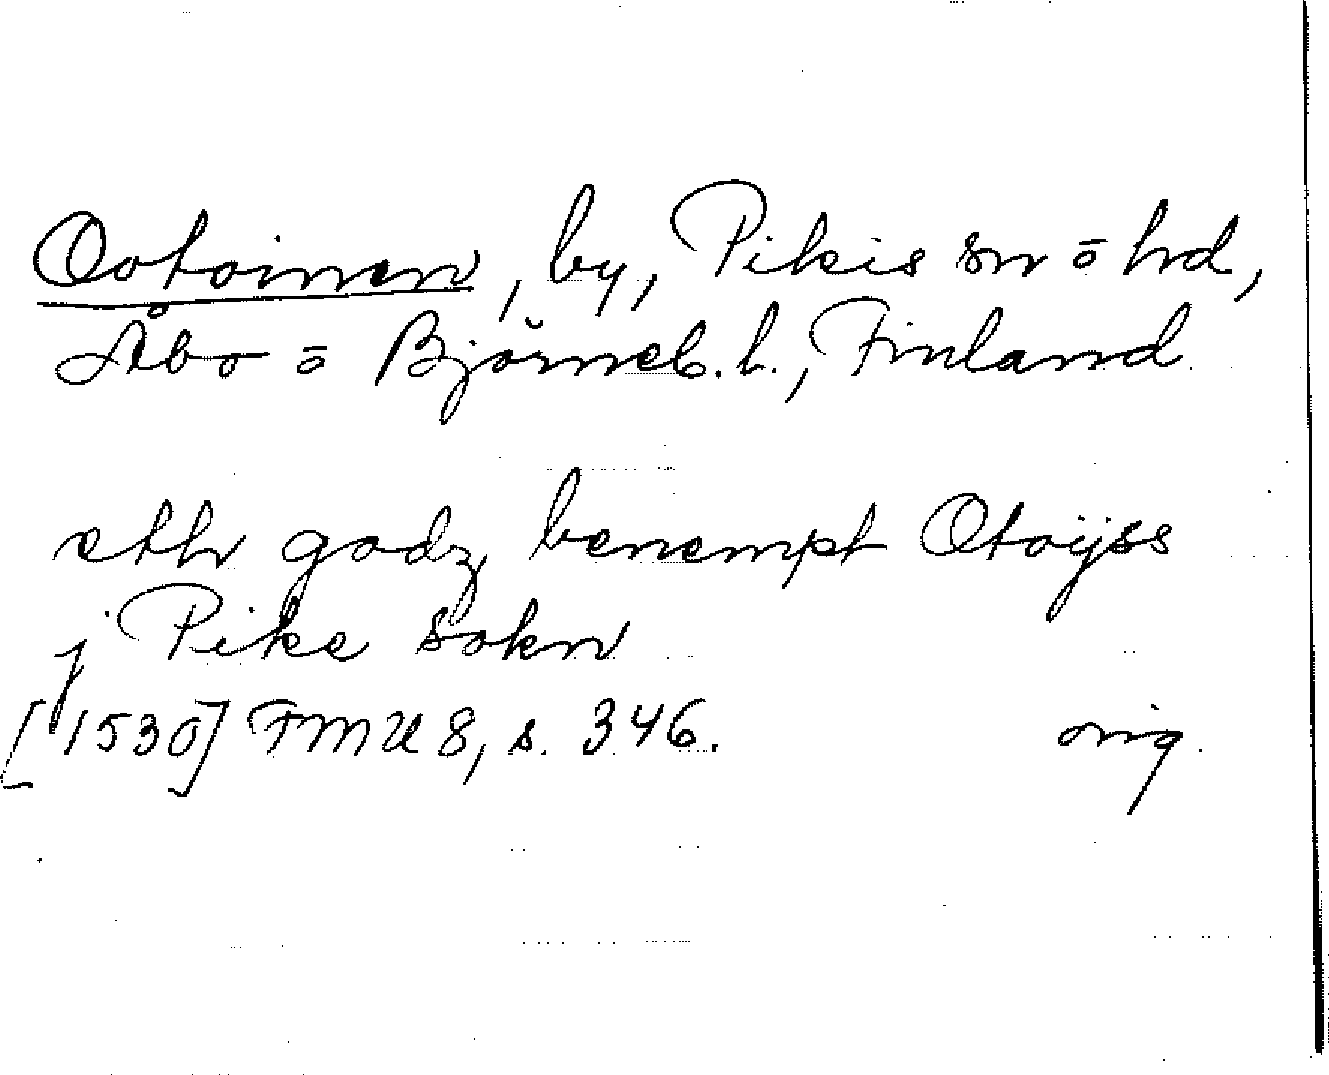 Ootoinen, by, Pikis sn o hd,
Åbo o Björneb. l., Finland
eth godz benempt Otoijss
j Pike sokn
[1530] FMU 8, s. 346. orig.